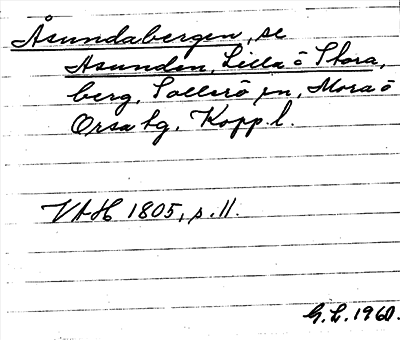 Åsundabergen, se
Åsunden, Lilla o Stora,
berg, Sollerö sn, Mora o
Orsa tg. Kopp.l.
VAH 1805, s. 11.
G.L. 1960.